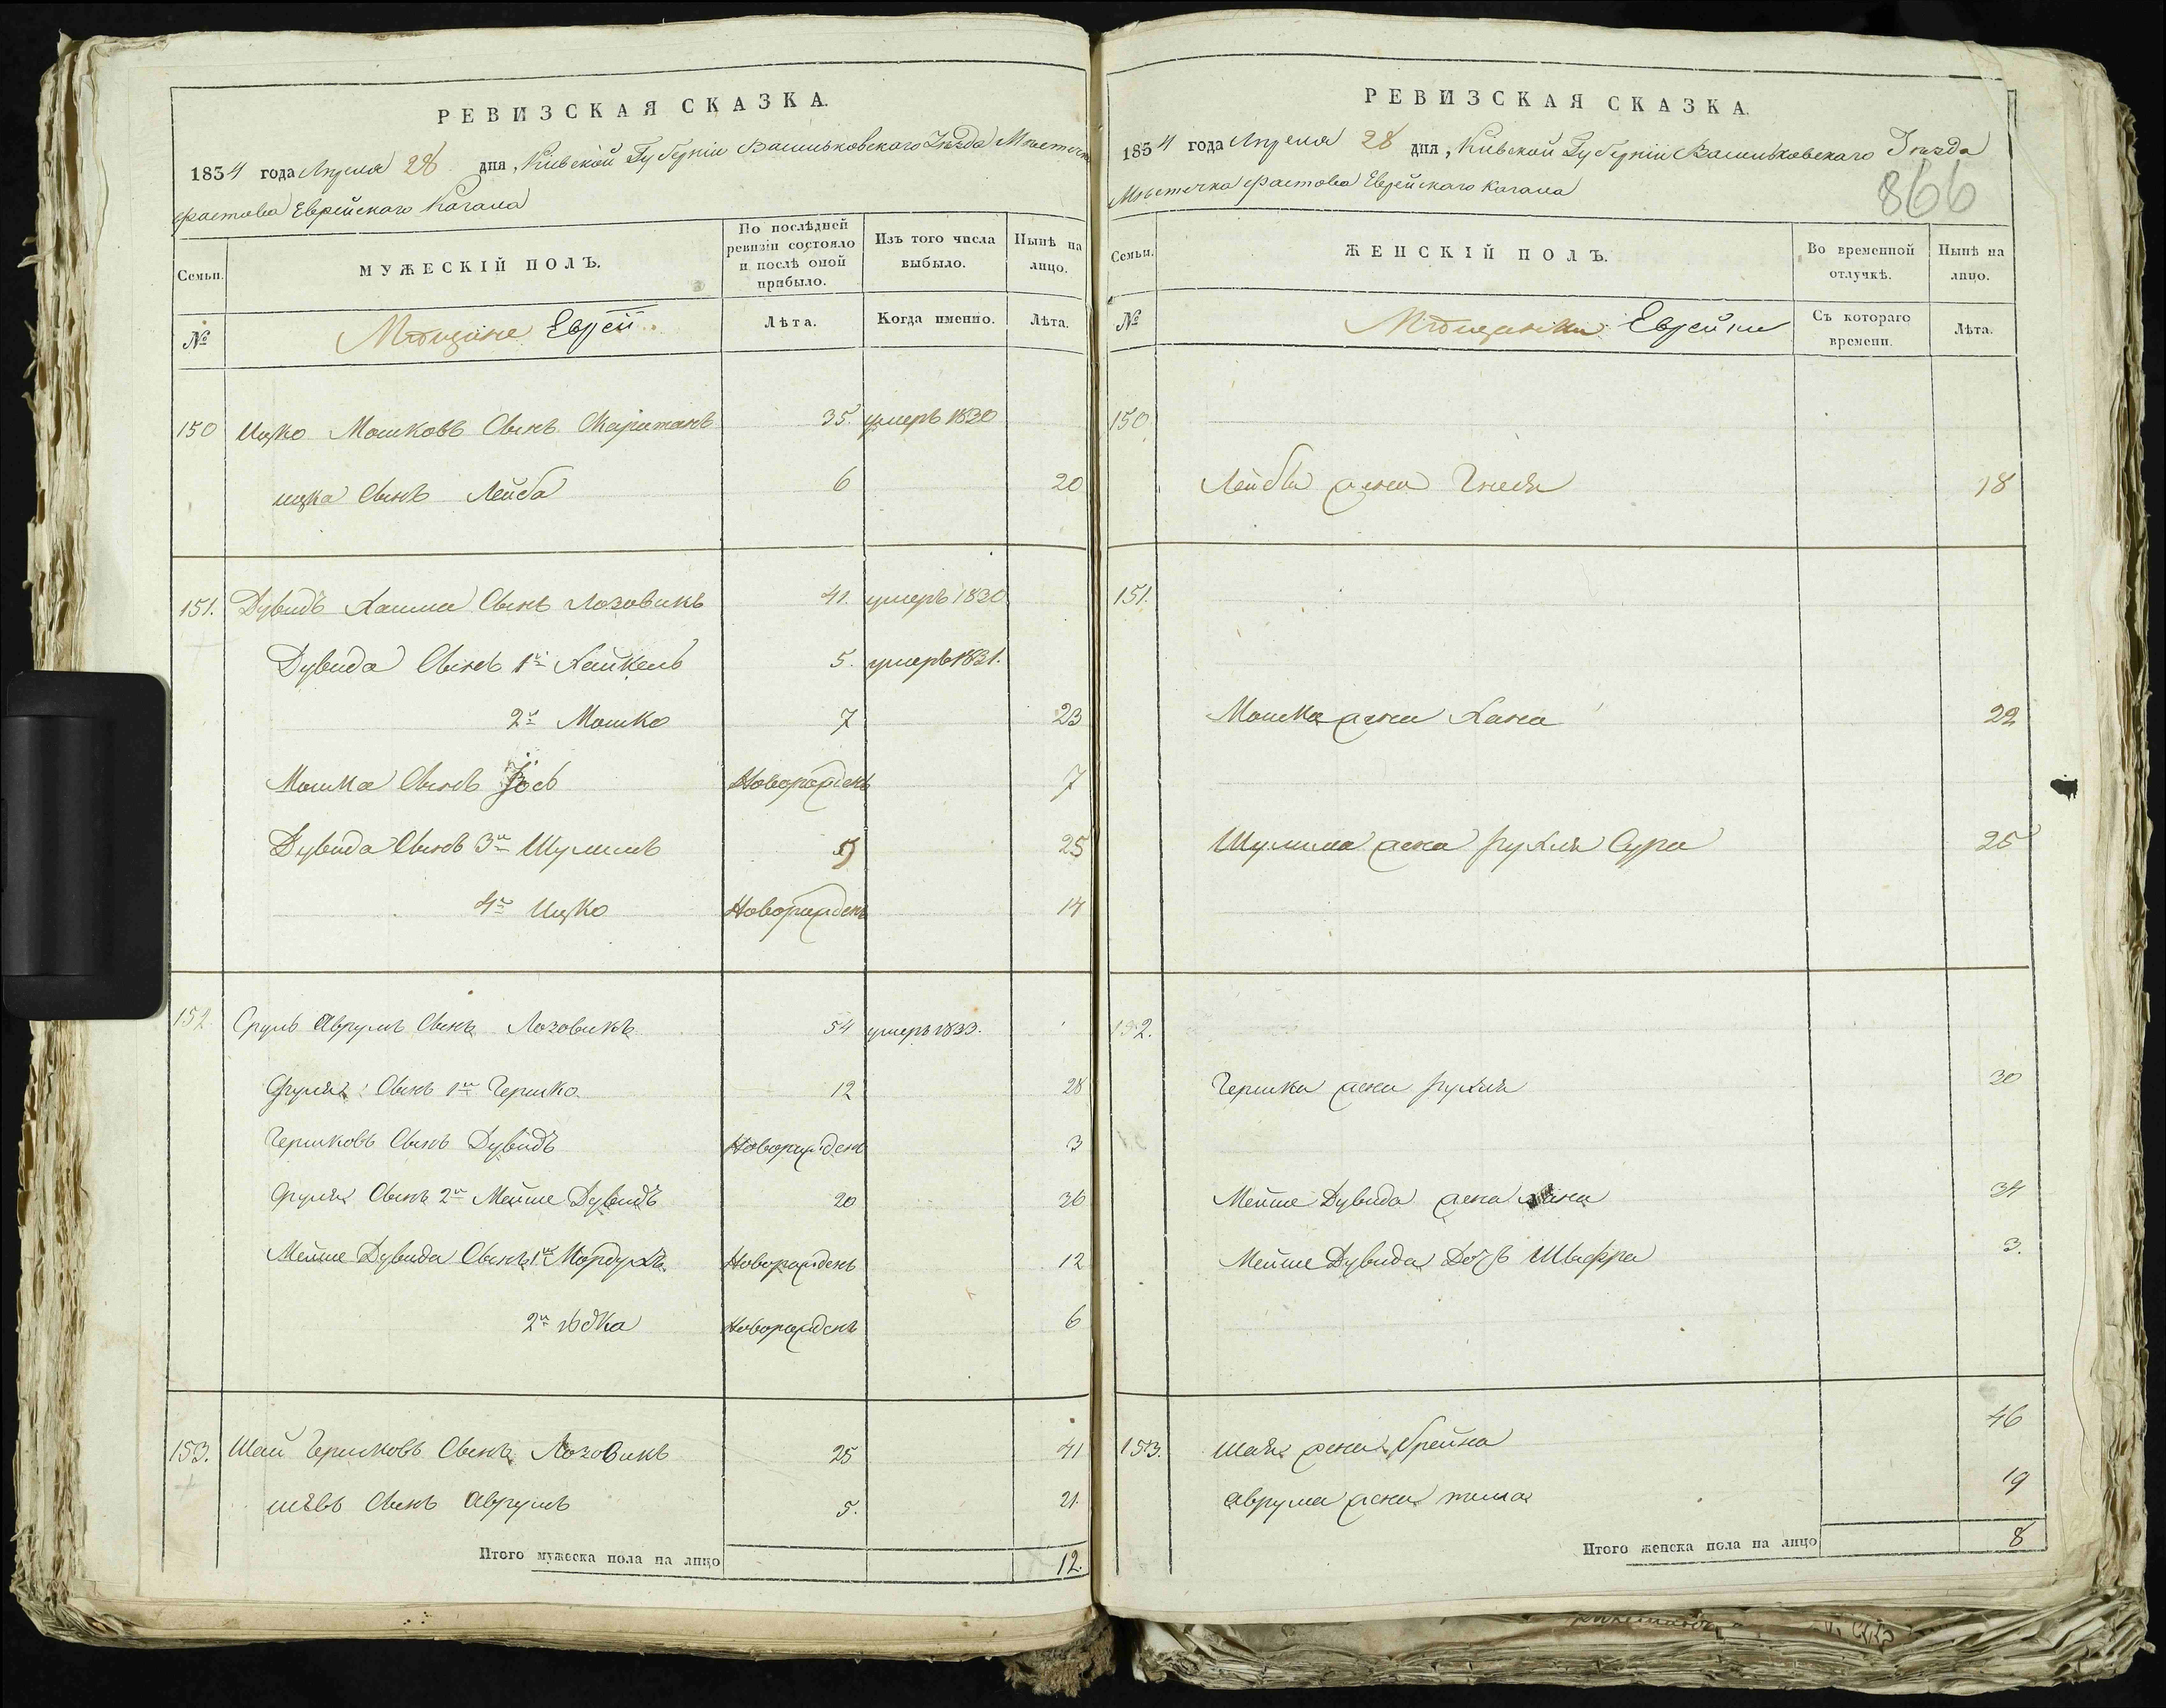 РЕВИЗСКАЯ СКАЗКА.
1834 года Апреля 28 дня, Кіевской Губерніи Васильковского Уезда Местечка
Фастова Еврейскаго Кагала
Семьи.
МУЖЕСКІЙ ПОЛЪ.
По послѣдней ревизіи состояло и послѣ оной прибыло.
Изъ того числа выбыло.
Нынѣ на лицо.
№
Мѣщане Евреи
Лѣта.
Когда именно.
Лѣта.
150 Ицко Мошковъ Сынъ 35 умеръ 1830
ицка Сынъ Лейба 6 20
151. Дувидъ Хаима Сынъ Лозовикъ 41. умеръ 1830
Дувида Сынъ 1й Хайкель 5. умеръ 1831.
2й Мошко 7 23
Мошка Сынъ Іось Новорожденъ 7
Дувида Сынъ 3й Шулимъ 9 25
4й Ицко Новорожденъ 14
152. Сруль Аврумъ Сынъ Лозовикъ 54 умеръ 1833.
Сруля Сынъ 1й Гершко 12 28
Гершковъ Сынъ Дувидъ Новорожденъ 3
Сруля Сынъ 2й Мейше Дувидъ 20 36
Мейше Дувида Сынъ 1й Мордухъ Новорожденъ 12
2й Новорожденъ 6
153. Шай Гершковъ Сынъ Лозовикъ 25 41
Сынъ Аврумъ 5. 21.
Итого мужеска пола на лицо 12.
РЕВИЗСКАЯ СКАЗКА.
1834 года Апреля 28 дня, Кіевской Губерніи Васильковскаго Уезда
Местечка Фастова Еврейскаго Кагала
866
Семьи.
ЖЕНСКІЙ ПОЛЪ.
Во временной отлучкѣ.
Нынѣ на лицо.
№
Мѣщанки Еврейки
Съ котораго времени.
Лѣта.
150
Лейбы жена Гнеся 18
151.
Мошка жена Хана 22
Шулима жена Рухля Сура 25
152.
Гершка жена Рухля 30
Мейше Дувида жена Хана 34
Мейше Дувида Дочь Шифра 3.
153. Шая жена Брейна 46
Аврума жена 19
Итого женска пола на лицо 8